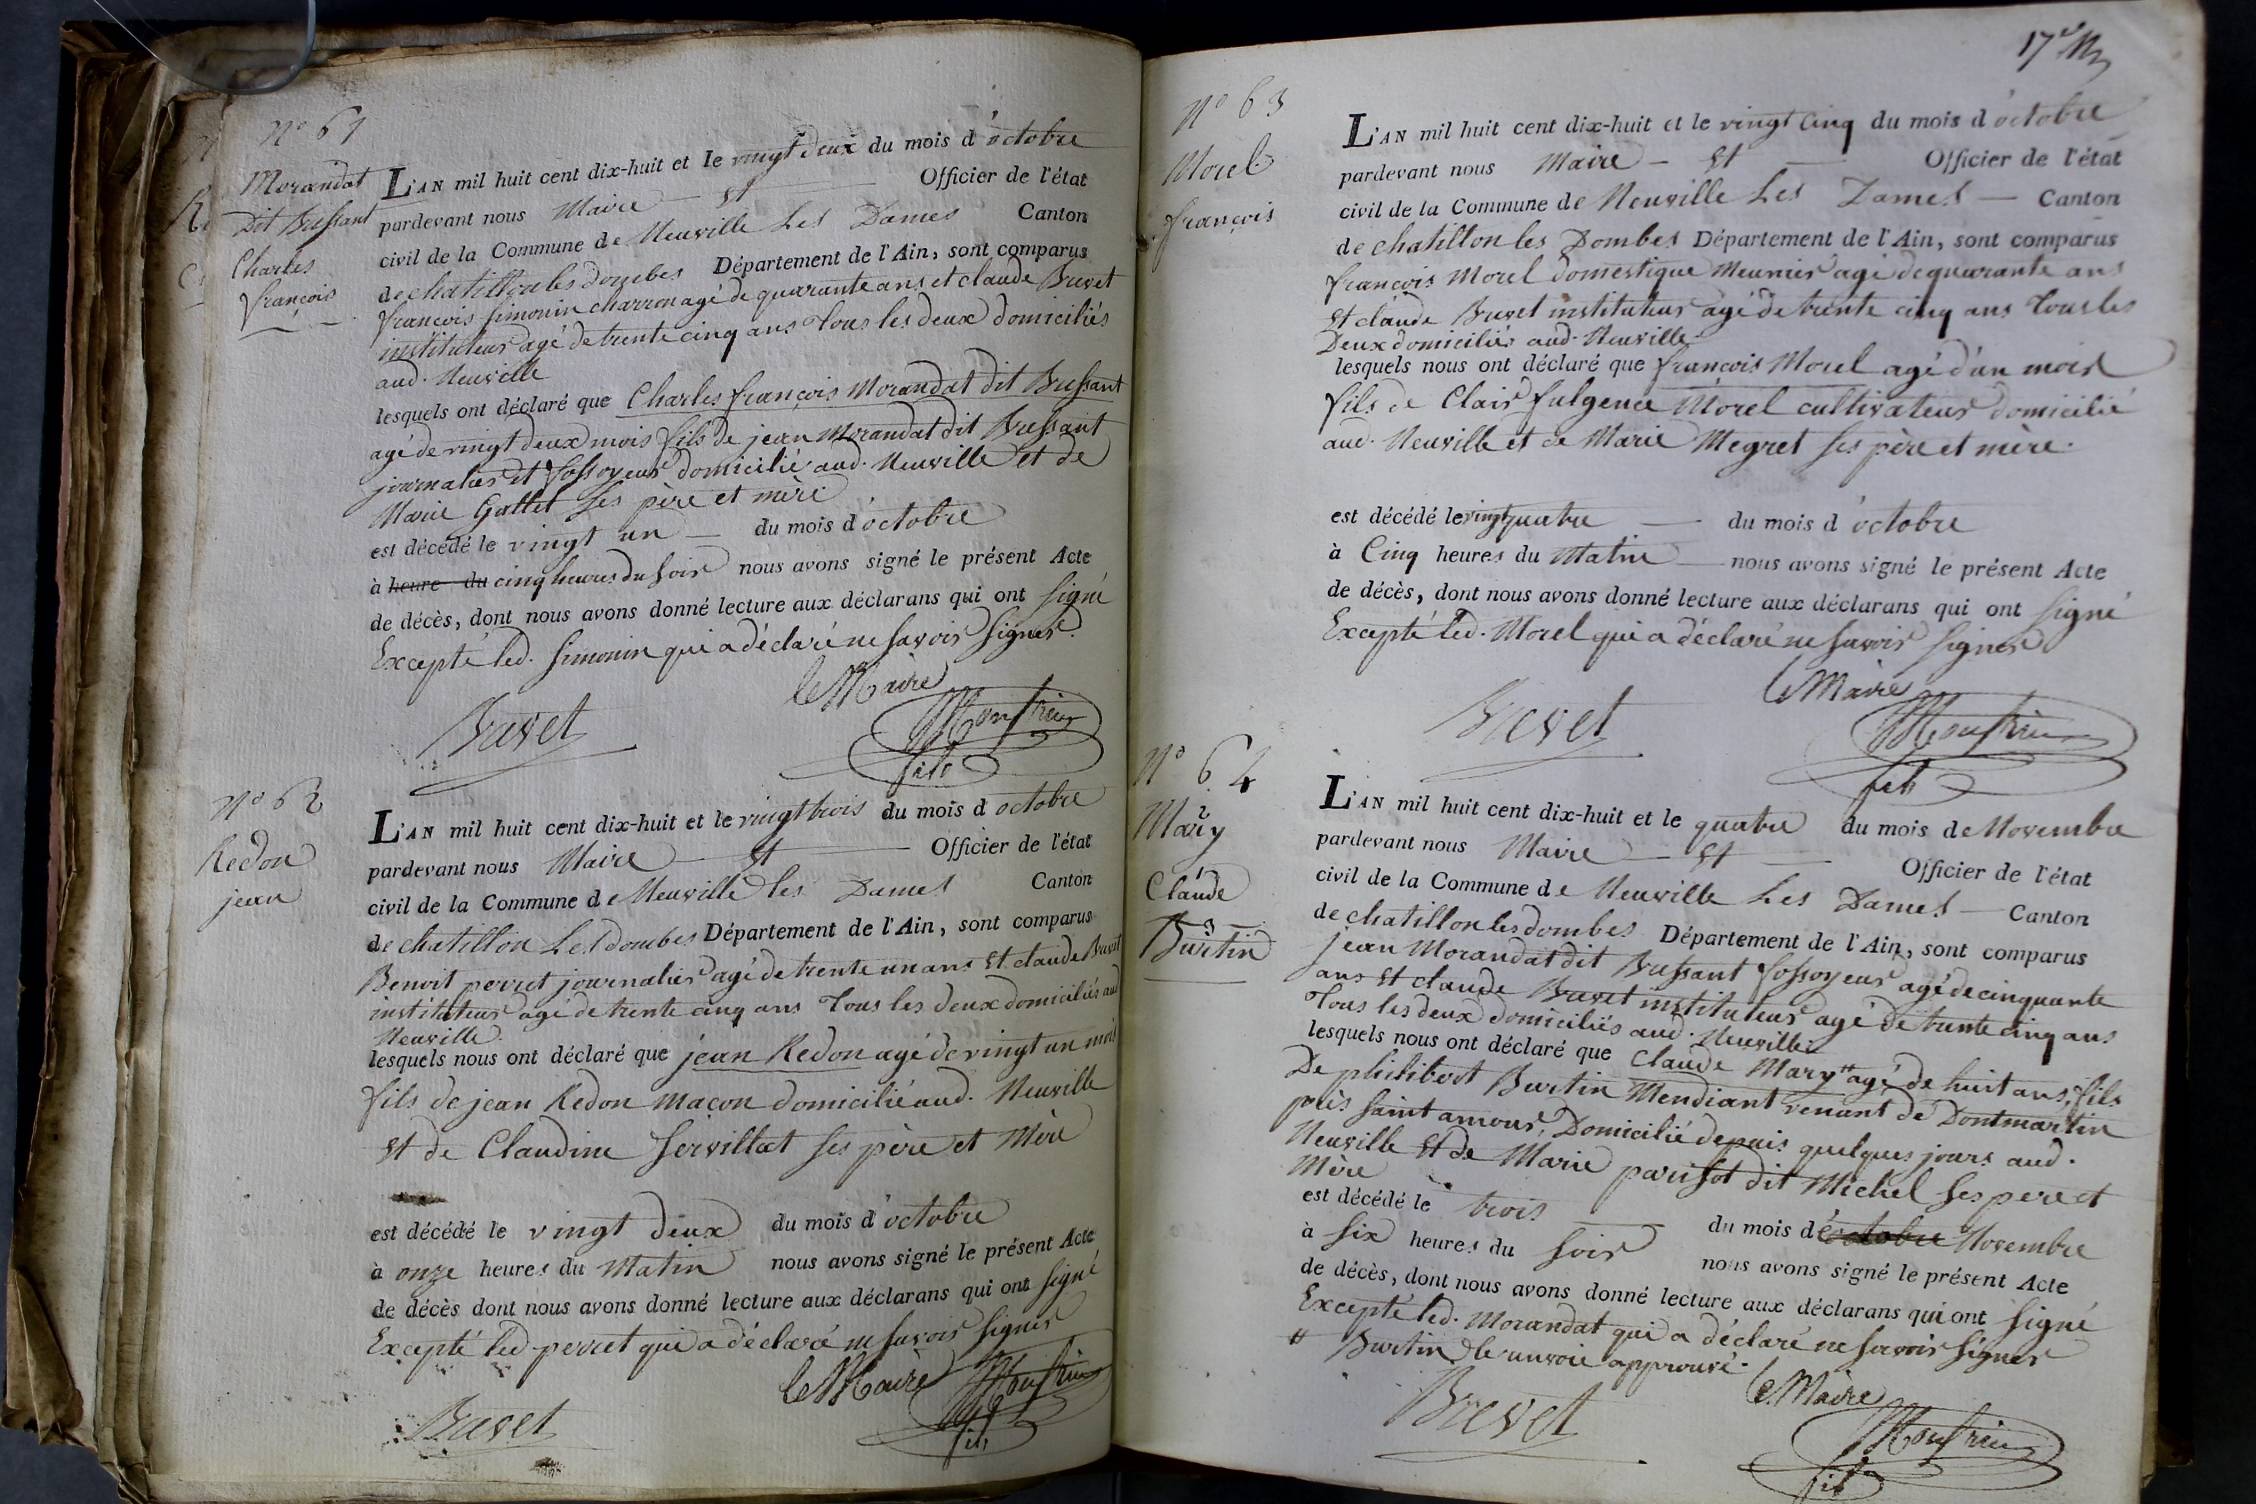 N.o 61
Morandat
Dit Bressant
Charles
françois
L'AN mil huit cent dix-huit et le vingt deux du mois d'octobre
pardevant nous Maire et Officier de l'état
civil de la Commune de Neuville Les Dames Canton
de chatillon les dombes Département de l'Ain, sont comparus
françois Simonin charron agé de quarante ans et claude Buvet
instituteur agé de trente cinq ans Tous les deux domiciliés
aud. Neuville
lesquels ont déclaré que Charles françois Morandat dit Bressant
agé de vingt deux mois fils de jean Morandat dit Bressant
journalier et fossoyeur domicilié aud. Neuville et de
Marie Gallet ses père et mère
est décédé le vingt un du mois d'octobre
à heure du cinq heures du soir nous avons signé le présent Acte
de décès, dont nous avons donné lecture aux déclarans qui ont signé
Excepté led. Simonin qui a déclaré ne savoir signer.
le Maire
Buvet
fils
N.o 62
Redon
jean
L'AN mil huit cent dix-huit et le vingt trois du mois d octobre
pardevant nous Maire et Officier de l'état
civil de la Commune de Neuville les Dames Canton
de chatillon Les dombes Département de l'Ain, sont comparus
Benoit perret journalier agé de trente un ans et claude Buvet
instituteur agé de trente cinq ans Tous les deux domiciliés aud
Neuville.
lesquels nous ont déclaré que jean Redon agé de vingt un mois
fils de jean Redon maçon domicilié aud. Neuville
et de Claudine Servillat ses père et Mère
est décédé le vingt deux du mois d'octobre
à onze heures du Matin nous avons signé le présent Acte
de décès dont nous avons donné lecture aux déclarans qui ont signé
Excepté led. perret qui a déclaré ne savoir signer
le Maire
Buvet
fils
17e
N.o 63
Morel
françois
L'AN mil huit cent dix-huit et le vingt cinq du mois d'octobre
pardevant nous Maire - et Officier de l'état
civil de la Commune de Neuville Les Dames — Canton
de chatillon les Dombes Département de l'Ain, sont comparus
françois Morel domestique Meunier agé de quarante ans
et claude Buvet instituteur agé de trente cinq ans Tous les
Deux domiciliés aud. Neuville.
lesquels nous ont déclaré que françois Morel agé d'un mois
fils de Clair fulgence Morel cultivateur domicilié
aud. Neuville et de Marie Megret ses père et mère.
est décédé le vingt quatre — du mois d'octobre
à Cinq heures du Matin — nous avons signé le présent Acte
de décès, dont nous avons donné lecture aux déclarans qui ont signé
Excepté led. Morel qui a déclaré ne savoir signer
le Maire
Buvet
fils
N.o 64
2
Mary
1
Claude
3
Burtin
L'AN mil huit cent dix-huit et le quatre du mois de Novembre
pardevant nous Maire — et — Officier de l'état
civil de la Commune de Neuville Les Dames — Canton
de chatillon les dombes Département de l'Ain, sont comparus
jean Morandat dit Bressant fossoyeur agé de cinquante
ans et claude Buvet instituteur agé de trente cinq ans
Tous les deux domiciliés aud. Neuville
lesquels nous ont déclaré que Claude Mary # agé de huit ans, fils
De philibert Burtin Mendiant venant de Dontmartin
près saint amour, Domicilié depuis quelques jours aud.
Neuville et de Marie parisot dit Michel ses pere et
Mère
est décédé le trois — du mois d'octobre Novembre
à Six heures du soir nous avons signé le présent Acte
de décès, dont nous avons donné lecture aux déclarans qui ont signé
Excepté led. Morandat qui a déclaré ne savoir signer
# Burtin le renvoie approuvé.
le Maire
Buvet
fils